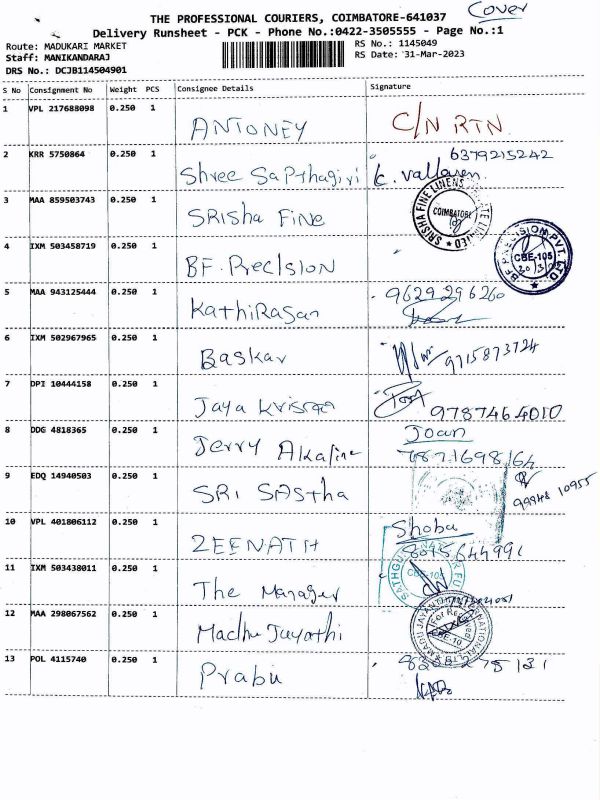 Cover
THE PROFESSIONAL COURIERS, COIMBATORE-641037
Delivery Runsheet - PCK - Phone No.:0422-3505555 - Page No.:1
Route: MADUKARI MARKET RS No.: 1145049
Staff: MANIKANDARAJ RS Date: 31-Mar-2023
DRS No.: DCJB114504901
S No Consignment No Weight PCS Consignee Details Signature
1 VPL 217688098 0.250 1 ANTONEY C/N RTN
2 KRR 5750864 0.250 1 Shree Sapthagiri 6379215242
3 MAA 859503743 0.250 1 SRisha FINE SRISHA FINE LINENS PRIVATE LIMITED COIMBATORE
4 IXM 503458719 0.250 1 BF. Precision BF PRECISION PVT. LTD. CBE-105
5 MAA 943125444 0.250 1 KathiRasan 9629296260
6 IXM 502967965 0.250 1 Baskar 9715873724
7 DPI 10444158 0.250 1 Jaya Krisna 9787464010
8 DDG 4818365 0.250 1 Jerry Akafine Joan
7871698164
9 EDQ 14940503 0.250 1 SRI SAStha 99948 10955
10 VPL 401806112 0.250 1 ZEENATH Shoba
8015644991
11 IXM 503438011 0.250 1 The Manager CBE-105
12 MAA 298067562 0.250 1 Madhu Jayathi For Received
13 POL 4115740 0.250 1 Prabu